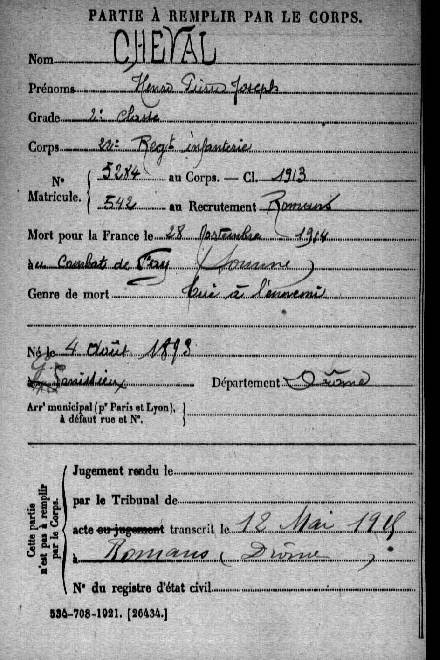 PARTIE À REMPLIR PAR LE CORPS.
Nom CHEVAL
Prénoms Henri Pierre Joseph
Grade 2e classe
Corps 22e Regt infanterie
N° Matricule. 5284 au Corps. — Cl. 1913
542 au Recrutement Romans
Mort pour la France le 28 Septembre 1914
au Combat de Fay (Somme)
Genre de mort Tué à l'ennemi
Né le 4 Août 1893
Département Drôme
Arrt municipal (pr Paris et Lyon),
à défaut rue et N°.
Cette partie n'est pas à remplir par le Corps.
Jugement rendu le
par le Tribunal de
acte ou jugement transcrit le 12 Mai 1915
à Romans (Drôme)
N° du registre d'état civil
534-708-1921. [26434.]